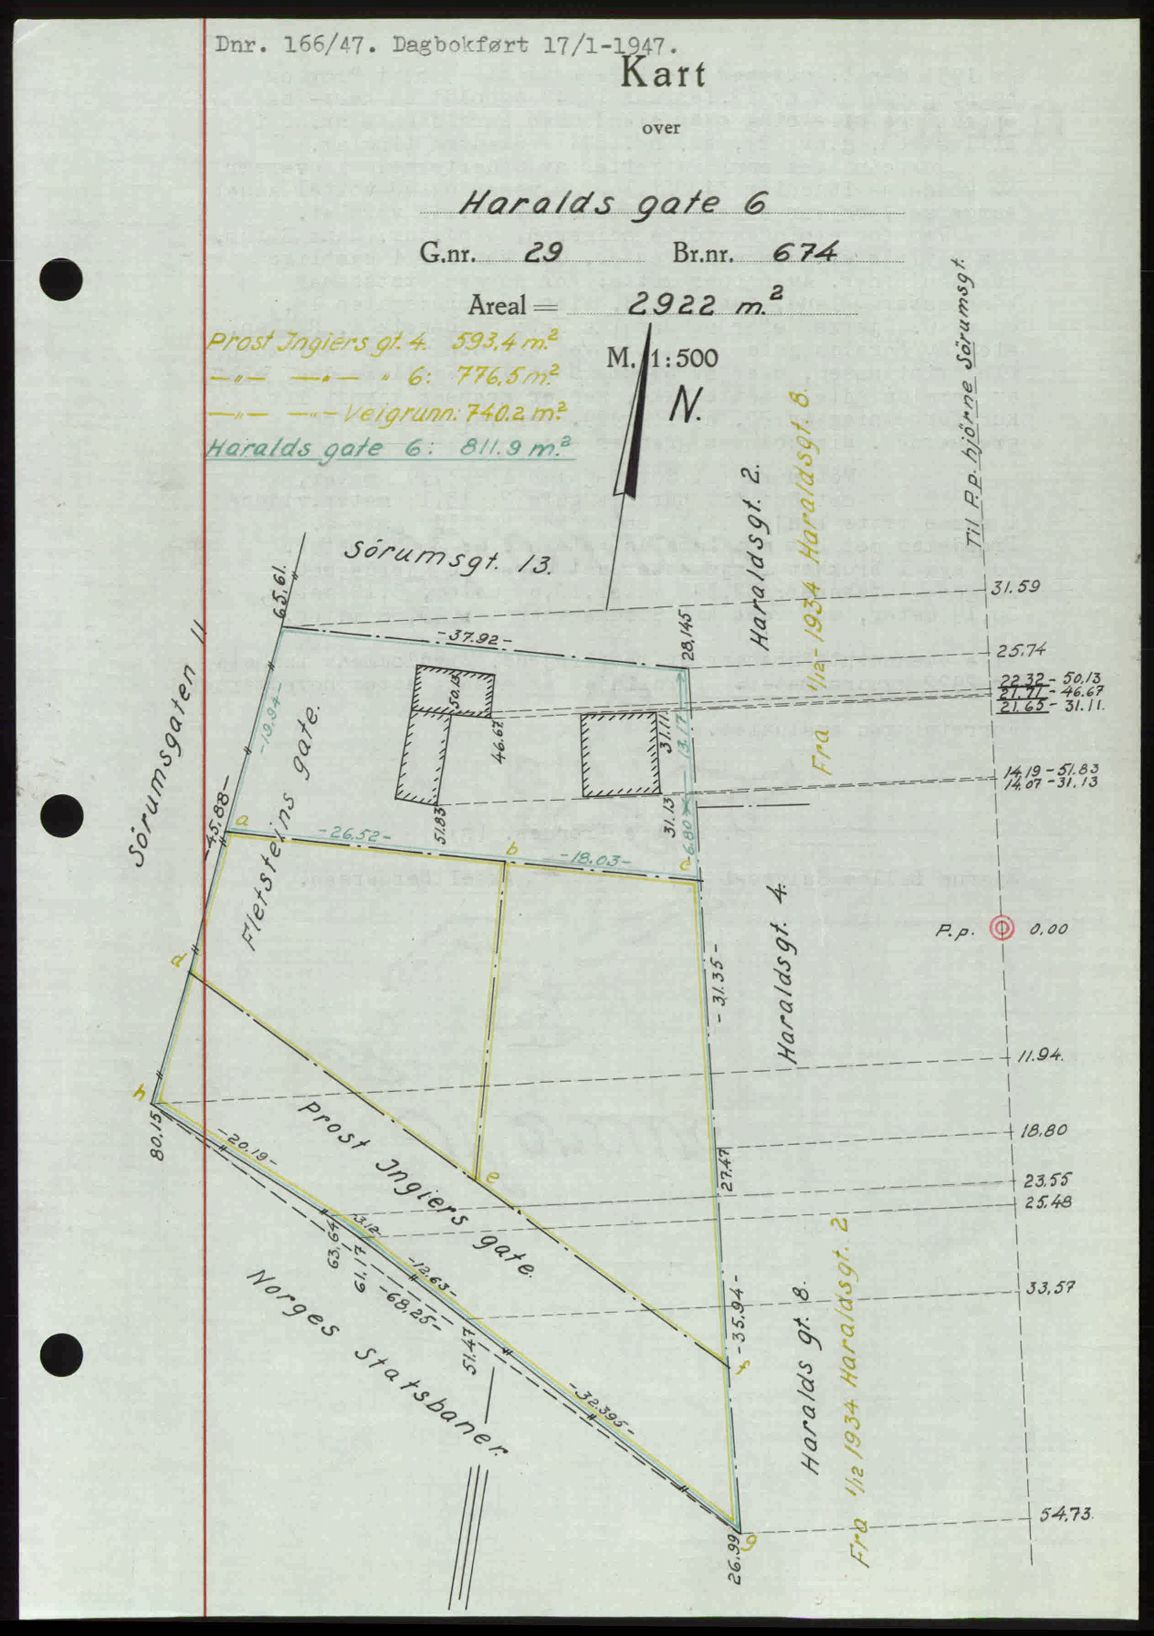 Dnr. 166/47. Dagbokført 17/1-1947.
Kart
over
Haralds gate 6
G.nr. 29 Br.nr. 674
Areal = 2922 m.²
M. 1:500
N.
Prost Ingiers gt. 4. 593,4 m.²
—„— —„— „ 6: 776,5 m.²
—„— —„— Veigrunn: 740.2 m.²
Haralds gate 6: 811.9 m.²
Til P.p. hjörne Sörumsgt.
Haraldsgt. 2.
Fra 1/12-1934 Haraldsgt. 8.
Sörumsgt. 13.
65,61.
-37.92-
28,145
31.59
25.74
22.32 - 50.13
21.71 - 46.67
21.65 - 31.11.
14.19 - 51.83
14.07 - 31.13
Sörumsgaten 11
-19.94-
Fletsteins gate.
50.13
46.67
31.11
13.17
51.83
31.13
6.80
-45.88-
a
-26.52-
b
-18.03-
c
Haraldsgt. 4.
P.p. 0,00
-31.35-
d
h
80.15
11.94.
18.80
27.47
23.55
25.48
-20.19-
Prost Ingiers gate.
e
3.12
63.64
61.17
-12.63-
-68,25-
51.47
33,57
-35.94-
f
-32.395-
Norges Statsbaner.
Haralds gt. 8.
Fra 1/12 1934 Haraldsgt. 2
g
26.99
54,73.